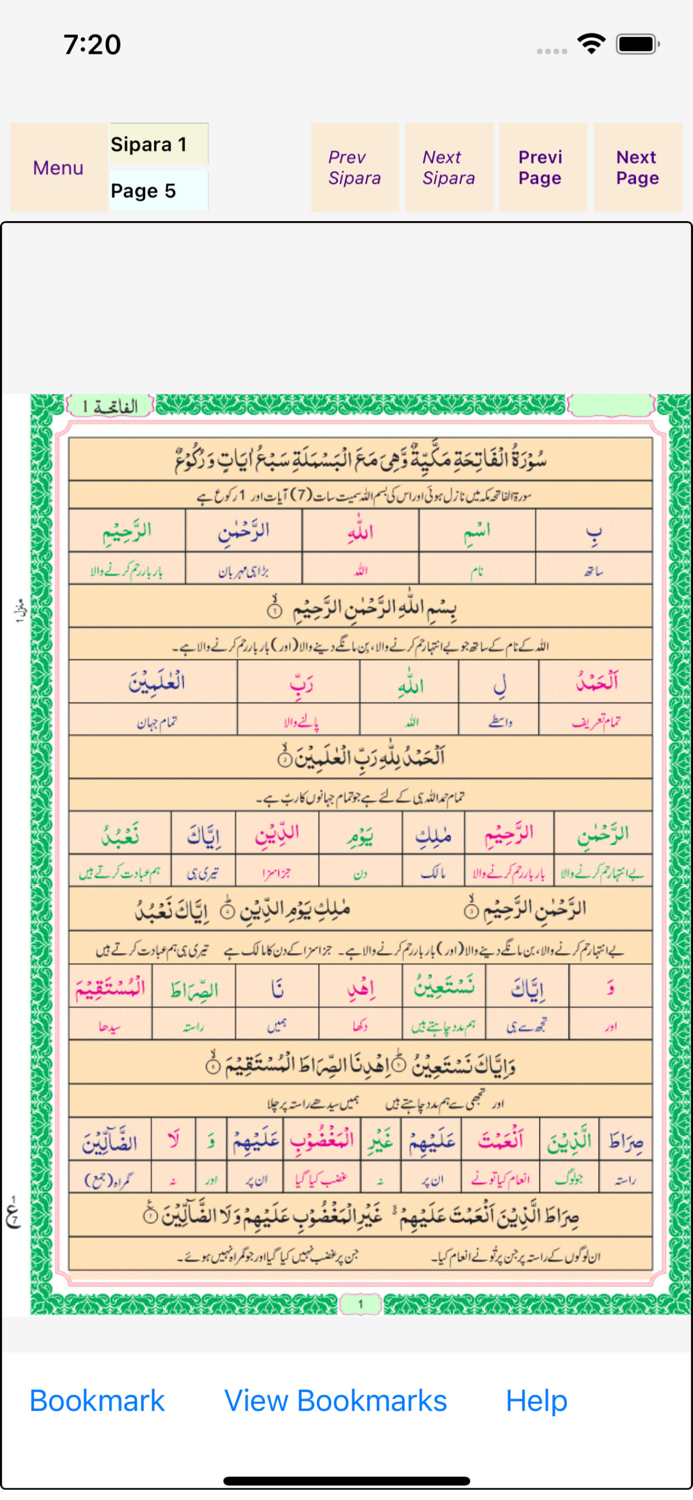 7:20
Menu
Sipara 1
Page 5
Prev Sipara
Next Sipara
Previ Page
Next Page
الفاتحة 1
سُوْرَةُ الْفَاتِحَةِ مَكِّيَّةٌ وَّهِىَ مَعَ الْبَسْمَلَةِ سَبْعُ اٰيَاتٍ وَّ رُكُوْعٌ
سورۃ الفاتحہ مکہ میں نازل ہوئی اور اس کی بسم اللہ سمیت سات (7) آیات اور 1 رکوع ہے
بِ اسْمِ اللّٰهِ الرَّحْمٰنِ الرَّحِيْمِ
ساتھ نام اللہ بڑا ہی مہربان بار بار رحم کرنے والا
منزل 1
بِسْمِ اللّٰهِ الرَّحْمٰنِ الرَّحِيْمِ ۝۱
اللہ کے نام کے ساتھ جو بے انتہا رحم کرنے والا، بن مانگے دینے والا (اور) بار بار رحم کرنے والا ہے۔
اَلْحَمْدُ لِ اللّٰهِ رَبِّ الْعٰلَمِيْنَ
تمام تعریف واسطے اللہ پالنے والا تمام جہان
اَلْحَمْدُ لِلّٰهِ رَبِّ الْعٰلَمِيْنَ ۝۲
تمام حمد اللہ ہی کے لئے ہے جو تمام جہانوں کا ربّ ہے۔
الرَّحْمٰنِ الرَّحِيْمِ مٰلِكِ يَوْمِ الدِّيْنِ اِيَّاكَ نَعْبُدُ
بے انتہا رحم کرنے والا بار بار رحم کرنے والا مالک دن جزا سزا تیری ہی ہم عبادت کرتے ہیں
الرَّحْمٰنِ الرَّحِيْمِ ۝۳ مٰلِكِ يَوْمِ الدِّيْنِ ۝۴ اِيَّاكَ نَعْبُدُ
بے انتہا رحم کرنے والا، بن مانگے دینے والا (اور) بار بار رحم کرنے والا ہے۔ جزا سزا کے دن کا مالک ہے تیری ہی ہم عبادت کرتے ہیں
وَ اِيَّاكَ نَسْتَعِيْنُ اِهْدِ نَا الصِّرَاطَ الْمُسْتَقِيْمَ
اور تجھ سے ہی ہم مدد چاہتے ہیں دکھا ہمیں راستہ سیدھا
وَاِيَّاكَ نَسْتَعِيْنُ ۝۵ اِهْدِنَا الصِّرَاطَ الْمُسْتَقِيْمَ ۝۶
اور تجھی سے ہم مدد چاہتے ہیں ہمیں سیدھے راستہ پر چلا
صِرَاطَ الَّذِيْنَ اَنْعَمْتَ عَلَيْهِمْ غَيْرِ الْمَغْضُوْبِ عَلَيْهِمْ وَ لَا الضَّآلِّيْنَ
راستہ جو لوگ انعام کیا تو نے ان پر نہ غضب کیا گیا ان پر اور نہ گمراہ (جمع)
صِرَاطَ الَّذِيْنَ اَنْعَمْتَ عَلَيْهِمْ غَيْرِ الْمَغْضُوْبِ عَلَيْهِمْ وَلَا الضَّآلِّيْنَ ۝۷
ان لوگوں کے راستہ پر جن پر تُو نے انعام کیا۔ جن پر غضب نہیں کیا گیا اور جو گمراہ نہیں ہوئے۔
1
Bookmark
View Bookmarks
Help